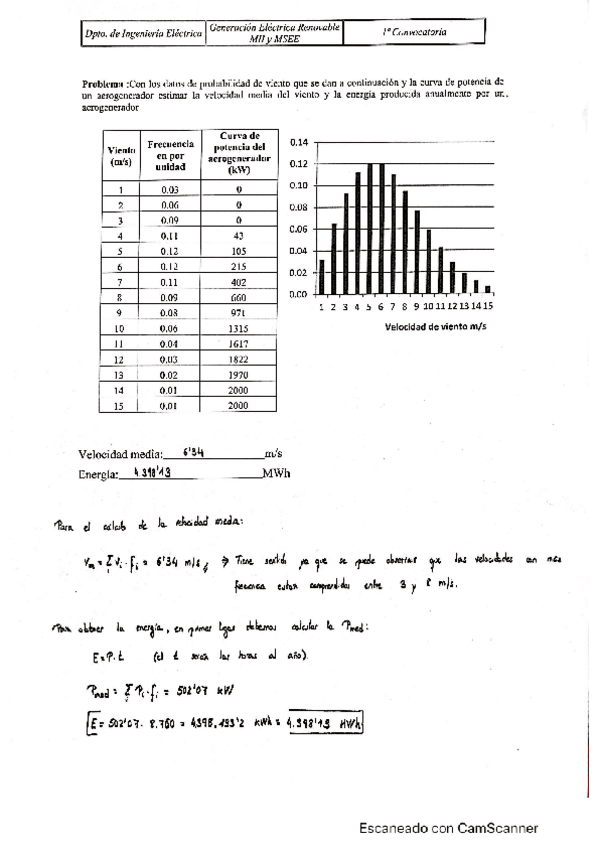 Dpto. de Ingeniería Eléctrica
Generación Eléctrica Renovable
MII y MSEE
1ª Convocatoria
Problema :Con los datos de probabilidad de viento que se dan a continuación y la curva de potencia de
un aerogenerador estimar la velocidad media del viento y la energía producida anualmente por un
aerogenerador
Viento (m/s) Frecuencia en por unidad Curva de potencia del aerogenerador (kW)
1 0.03 0
2 0.06 0
3 0.09 0
4 0.11 43
5 0.12 105
6 0.12 215
7 0.11 402
8 0.09 660
9 0.08 971
10 0.06 1315
11 0.04 1617
12 0.03 1822
13 0.02 1970
14 0.01 2000
15 0.01 2000
0.14
0.12
0.10
0.08
0.06
0.04
0.02
0.00
1 2 3 4 5 6 7 8 9 10 11 12 13 14 15
Velocidad de viento m/s
Velocidad media: 6'34 m/s
Energía: 4.398'13 MWh
Para el cálculo de la velocidad media:
Vm = Σ Vi · fi = 6'34 m/s ⇒ Tiene sentido ya que se puede observar que las velocidades con más
frecuencia están comprendidas entre 3 y 8 m/s.
Para obtener la energía, en primer lugar debemos calcular la Pmed:
E = P · t (el t serán las horas al año).
Pmed = Σ Pi · fi = 502'07 kW
E = 502'07 · 8.760 = 4.398.133'2 kWh = 4.398'13 MWh
Escaneado con CamScanner